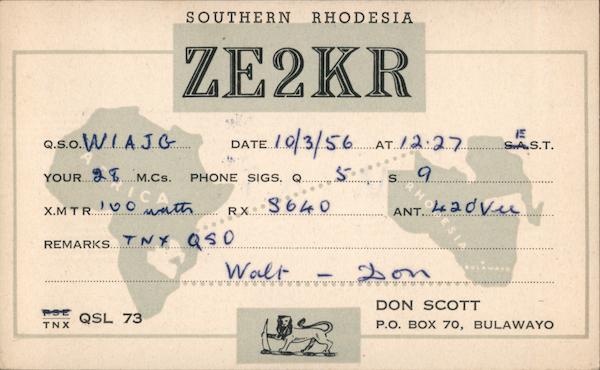 SOUTHERN RHODESIA
ZE2KR
Q.S.O. W1AJG DATE 10/3/56 AT 12.27 E S.A.S.T.
YOUR 28 M.Cs. PHONE SIGS. Q 5 S 9
X.MTR 100 watts RX S640 ANT. 420Vee
REMARKS TNX QSO
Walt - Don
AFRICA
RHODESIA
BULAWAYO
PSE
TNX QSL 73
DON SCOTT
P.O. BOX 70, BULAWAYO